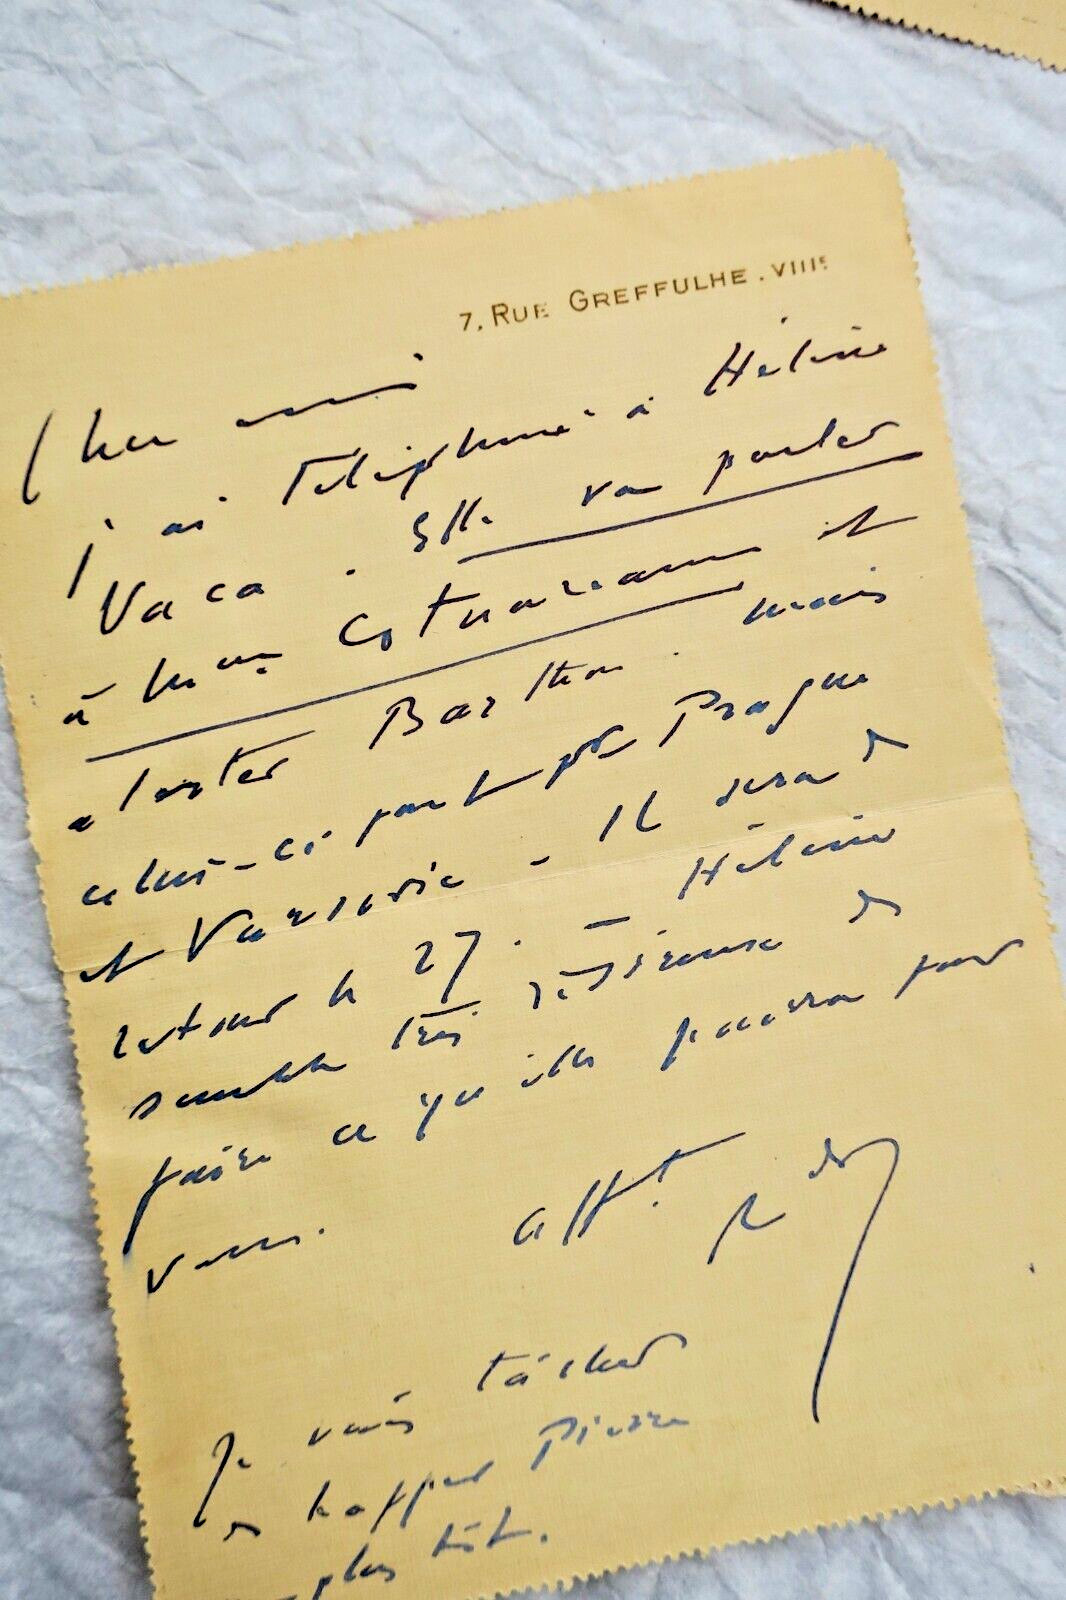 7, RUE GREFFULHE . VIIIE
Cher ami
j'ai téléphoné à Hélène
Vaca . Elle va parler
à
à Barthou . mais
celui-ci part pr Prague
et Varsovie - Il sera de
retour le 27. - Hélène
semble très désireuse de
faire ce qu'elle pourra pour
vous. afft.
Je vais tâcher
de happer Pierre
plus tôt.